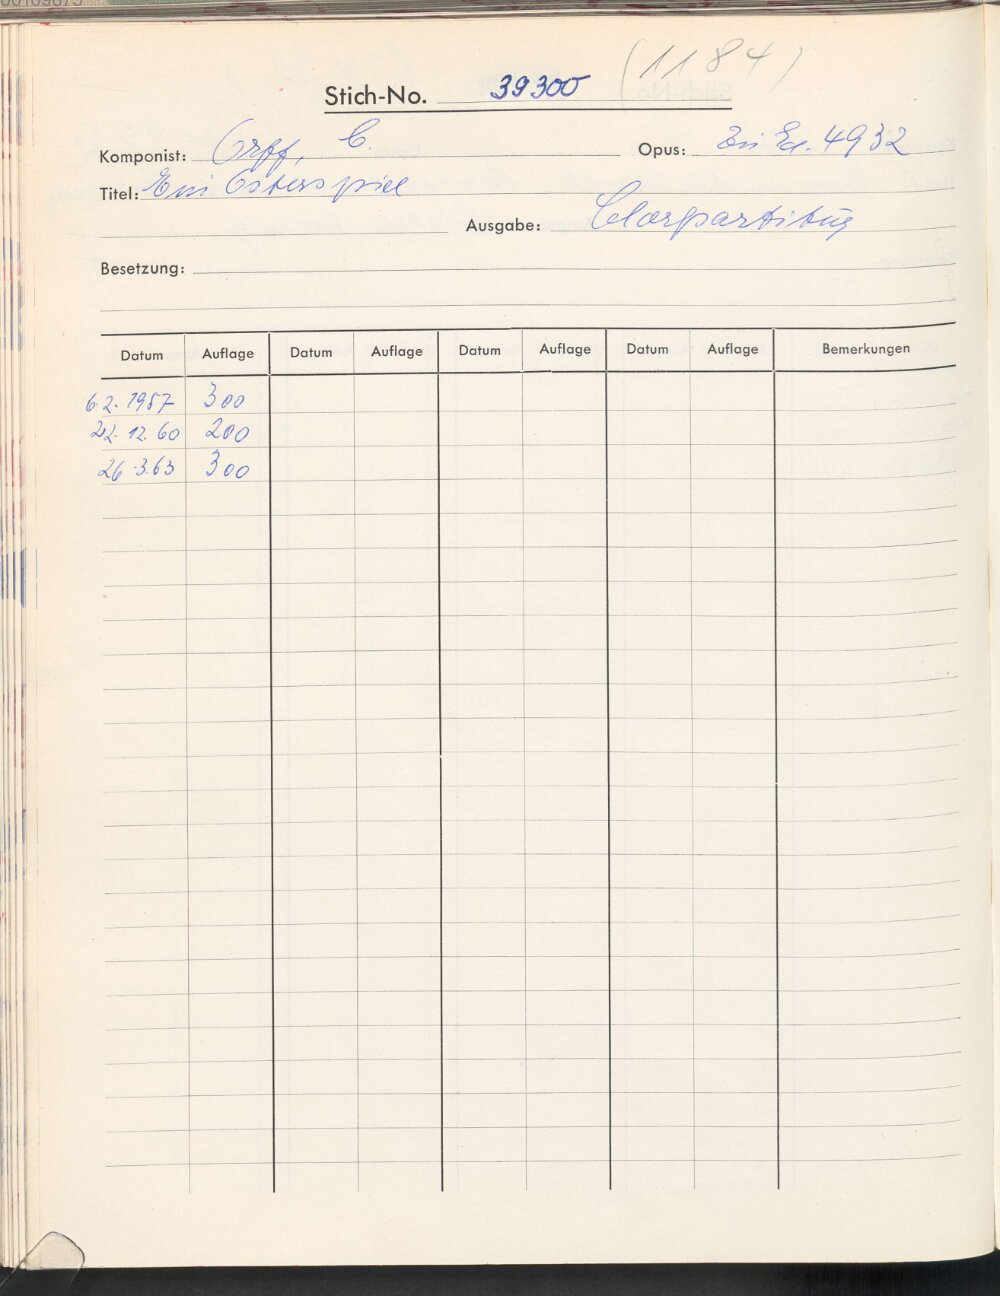 Stich-No. 39300 (1184)
Komponist: Orff, C. Opus: Zu Ed. 4932
Titel: Ein Osterspiel
Ausgabe: Chorpartitur
Besetzung:
Datum Auflage Datum Auflage Datum Auflage Datum Auflage Bemerkungen
6.2.1957 300
22.12.60 200
26.3.63 300